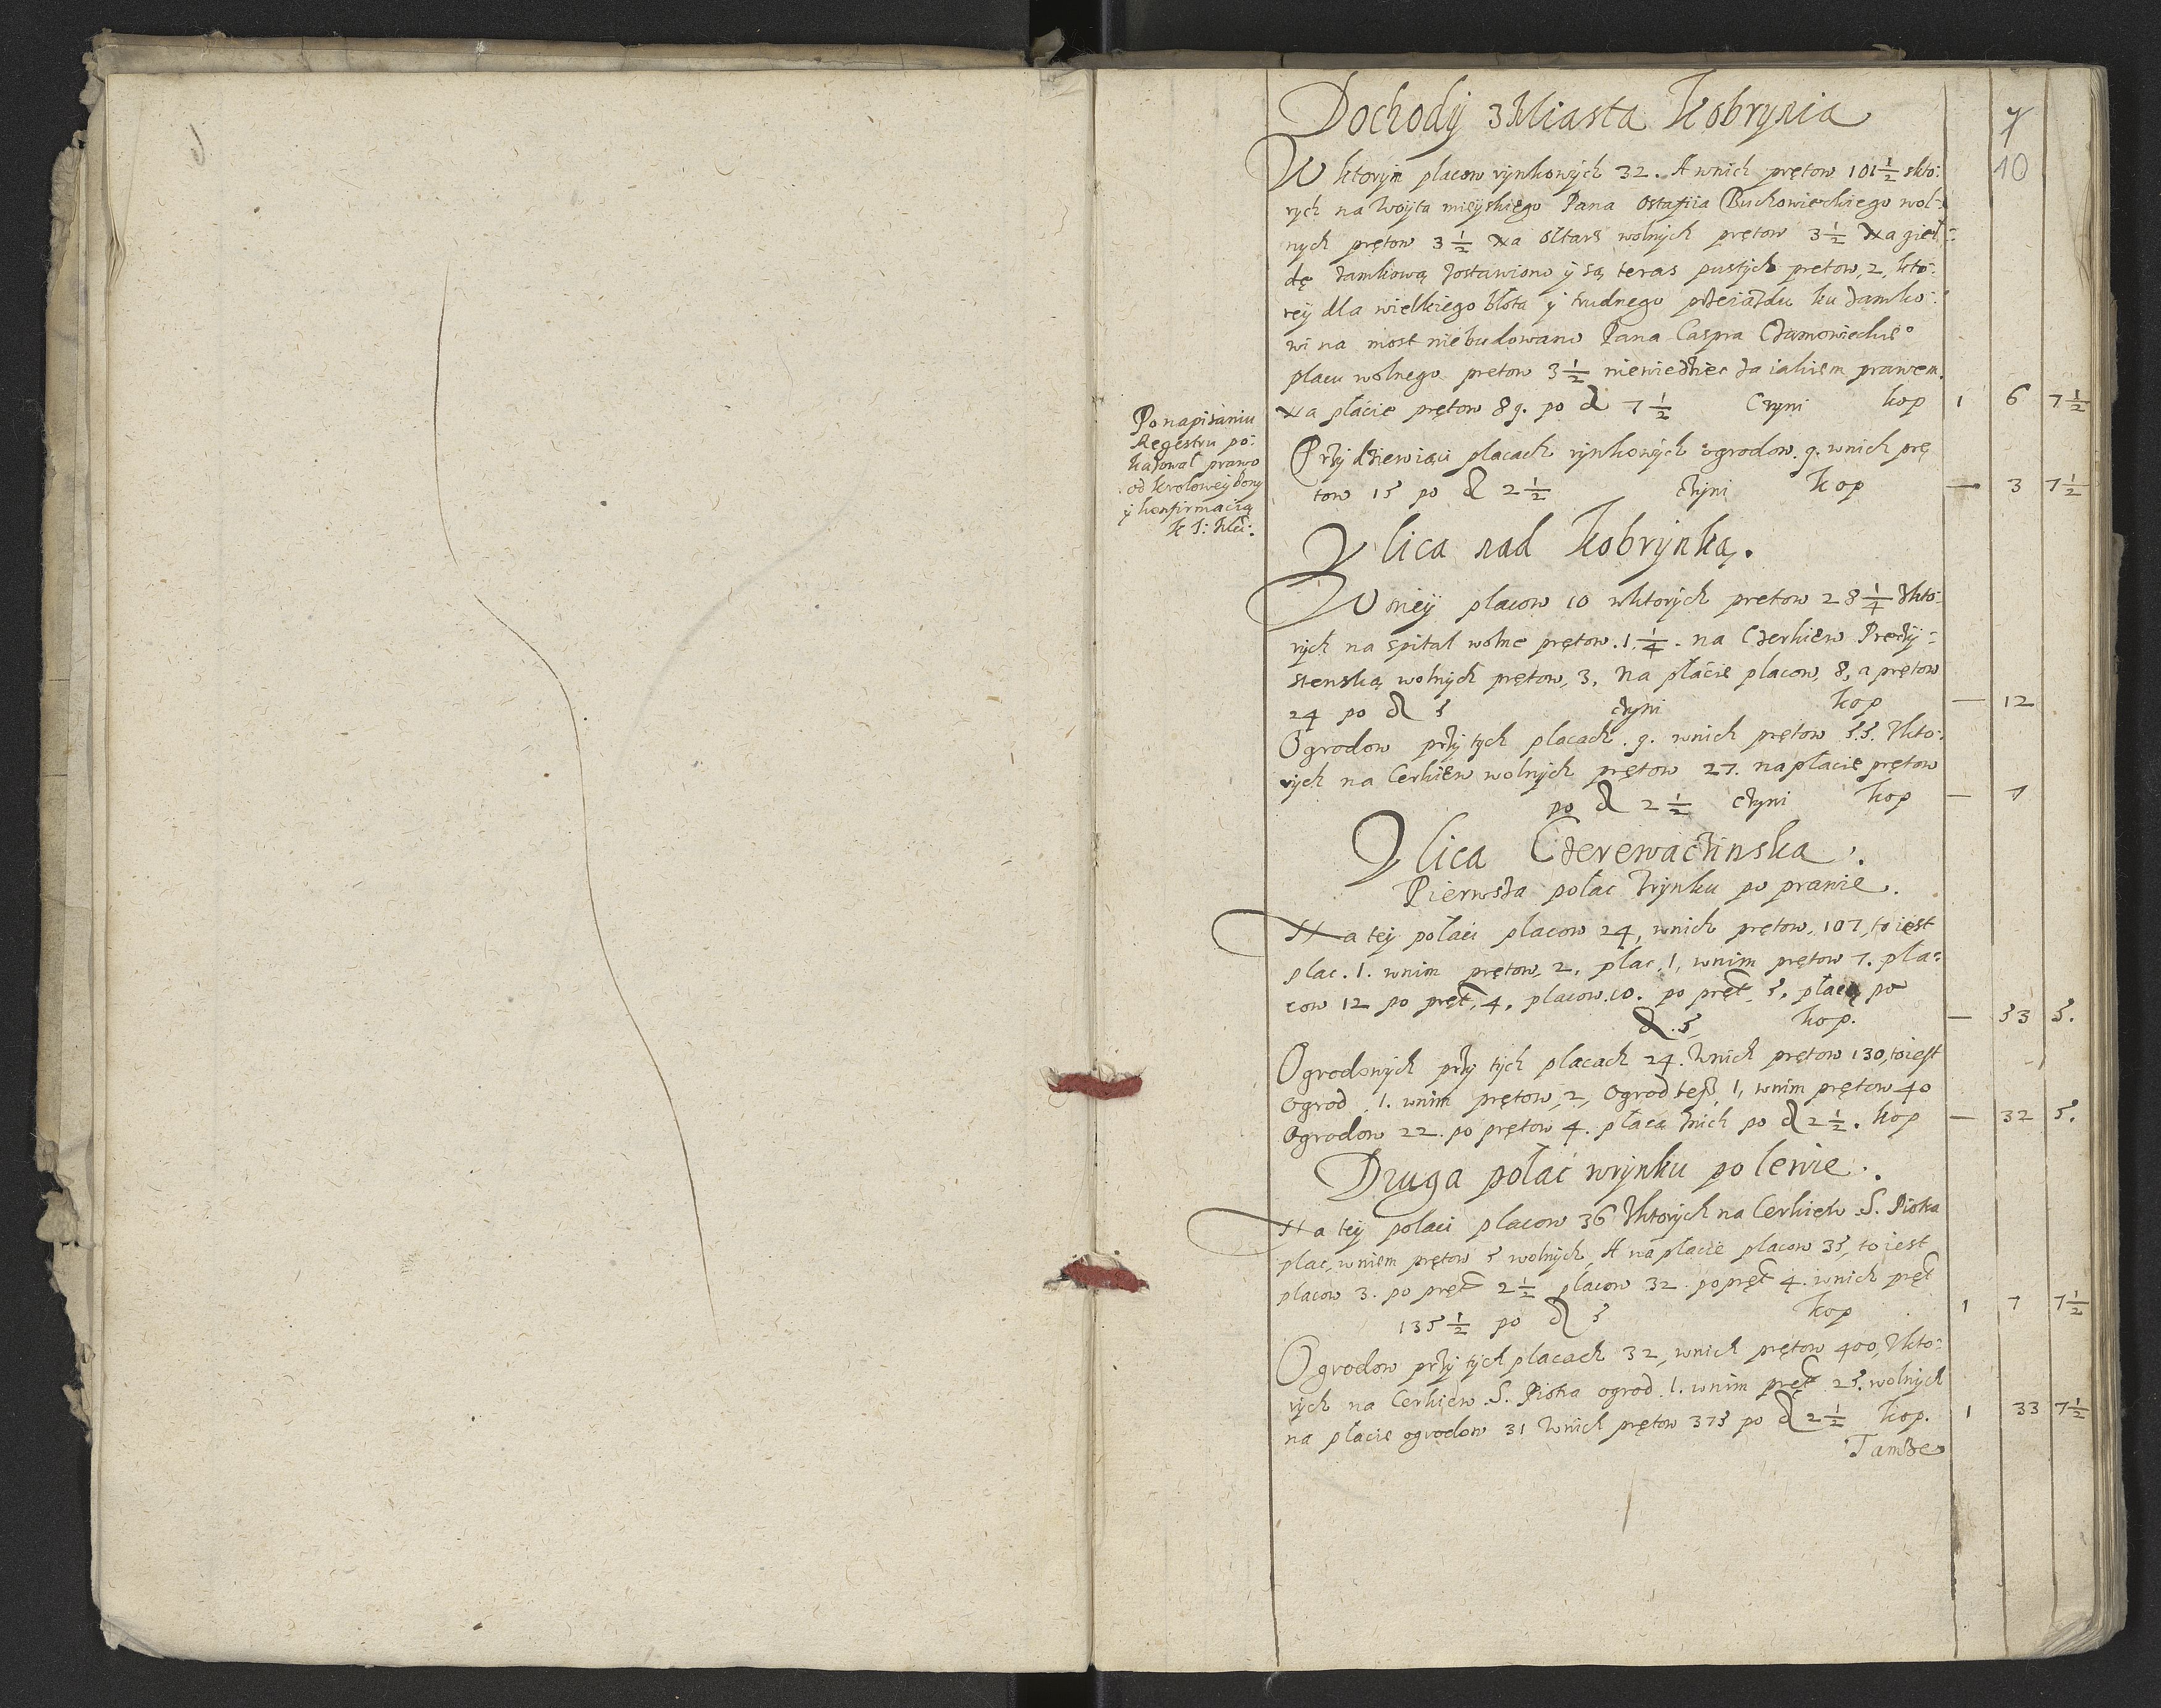 Dochody z Miasta Kobrynia
7
10
W ktorym placow rynkowych 32. A wnich prętow 101 1/2 skto:
rych na Woyta mieyskiego Pana Ostafiia Buchowieckiego wol=
nych prętow 3 1/2 Na Ołtarz wolnych prętow 3 1/2 Na gieł=
dę zamkową zostawiono y są teras pustych pretow, 2, kto:
rey dla wielkiego błota y trudnego przeiazdu ku zamko:
wi na most niebudowano Pana Caspra
placu wolnego pretow 3 1/2 niewiedziec za iakiem prawem.
Na płacie prętow 89. po d 7 1/2 Czyni kop 1 6 7 1/2
Po napisaniu
Regestru po:
kazował prawo
od krolowey Bony
y konfirmacią
K J: Mći:
Przy dziewiąci placach rynkowych ogrodow. 9. wnich prę
tow 15 po d 2 1/2 czyni kop — 3 7 1/2
Vlica nad Kobrynką.
W niey placow 10 wktorych pretow 28 1/4 Zkto:
rych na spital wolne prętow. 1 1/4. na Czerkiew Preczy=
stenską wolnych prętow, 3. Na płacie placow, 8, a prętow
24 po d 5 czyni kop — 12
Ogrodow przy tych placach. 9. wnich prętow 55. Zkto:
rych na Cerkiew wolnych prętow 27. na płacie prętow
po d 2 1/2 czyni kop — 7
Vlica Czerewaczinska.
Pierwsza połac z rynku po prawie.
Na tey połaci placow 24, wnich prętow, 107, to iest
plac. 1. wnim prętow, 2, plac, 1, wnim prętow 7. pla=
cow 12 po pręt, 4, placow. 10. po pręt, 5, płacą po
d. 5, kop. — 53 5.
Ogrodowych przy tych placach 24. Wnich prętow 130, to iest
Ogrod 1. wnim prętow, 2, Ogrod tesz, 1, wnim prętow 40
Ogrodow 22. po prętow 4. płacą znich po d 2 1/2. kop — 32 5.
Druga połać wrynku po lewie.
Na tey polaci placow 36 Zktorych na Cerkiew S. Piotra
plac, wniem prętow 5 wolnych, A na płacie placow 35, to iest
placow 3. po pręt 2 1/2 placow 32. po pręt 4. wnich pręt
135 1/2 po d 5 kop 1 7 7 1/2
Ogrodow przy tych placach 32, wnich prętow 400, Zkto:
rych na Cerkiew S. Piotra ogrod. 1. wnim pręt 25. wolnych
na płacie ogrodow 31 Wnich prętow 375 po d 2 1/2 kop. 1 33 7 1/2
Tamże